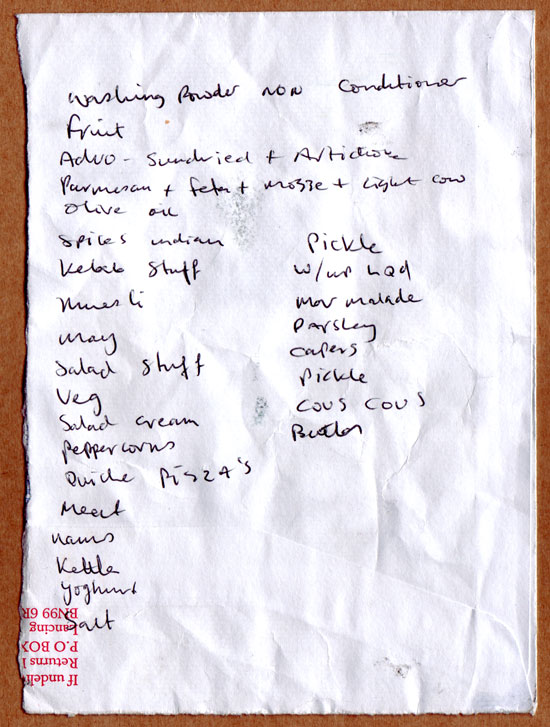 Washing Powder non Conditioner
Fruit
Advo - Sundried + Artichoke
Parmesan + feta + mozze + Light cow
Olive oil
Spices indian
Kebab Stuff
Muesli
May
Salad stuff
Veg
Salad cream
Peppercorns
Quiche Pizza's
Meat
nans
Kettle
Yoghurt
Salt
Pickle
w/up Lqd
Mar malade
Parsley
Capers
Pickle
Cous Cous
Butter
If undeli
Returns
P.O BOX
Lancing
BN99 6R